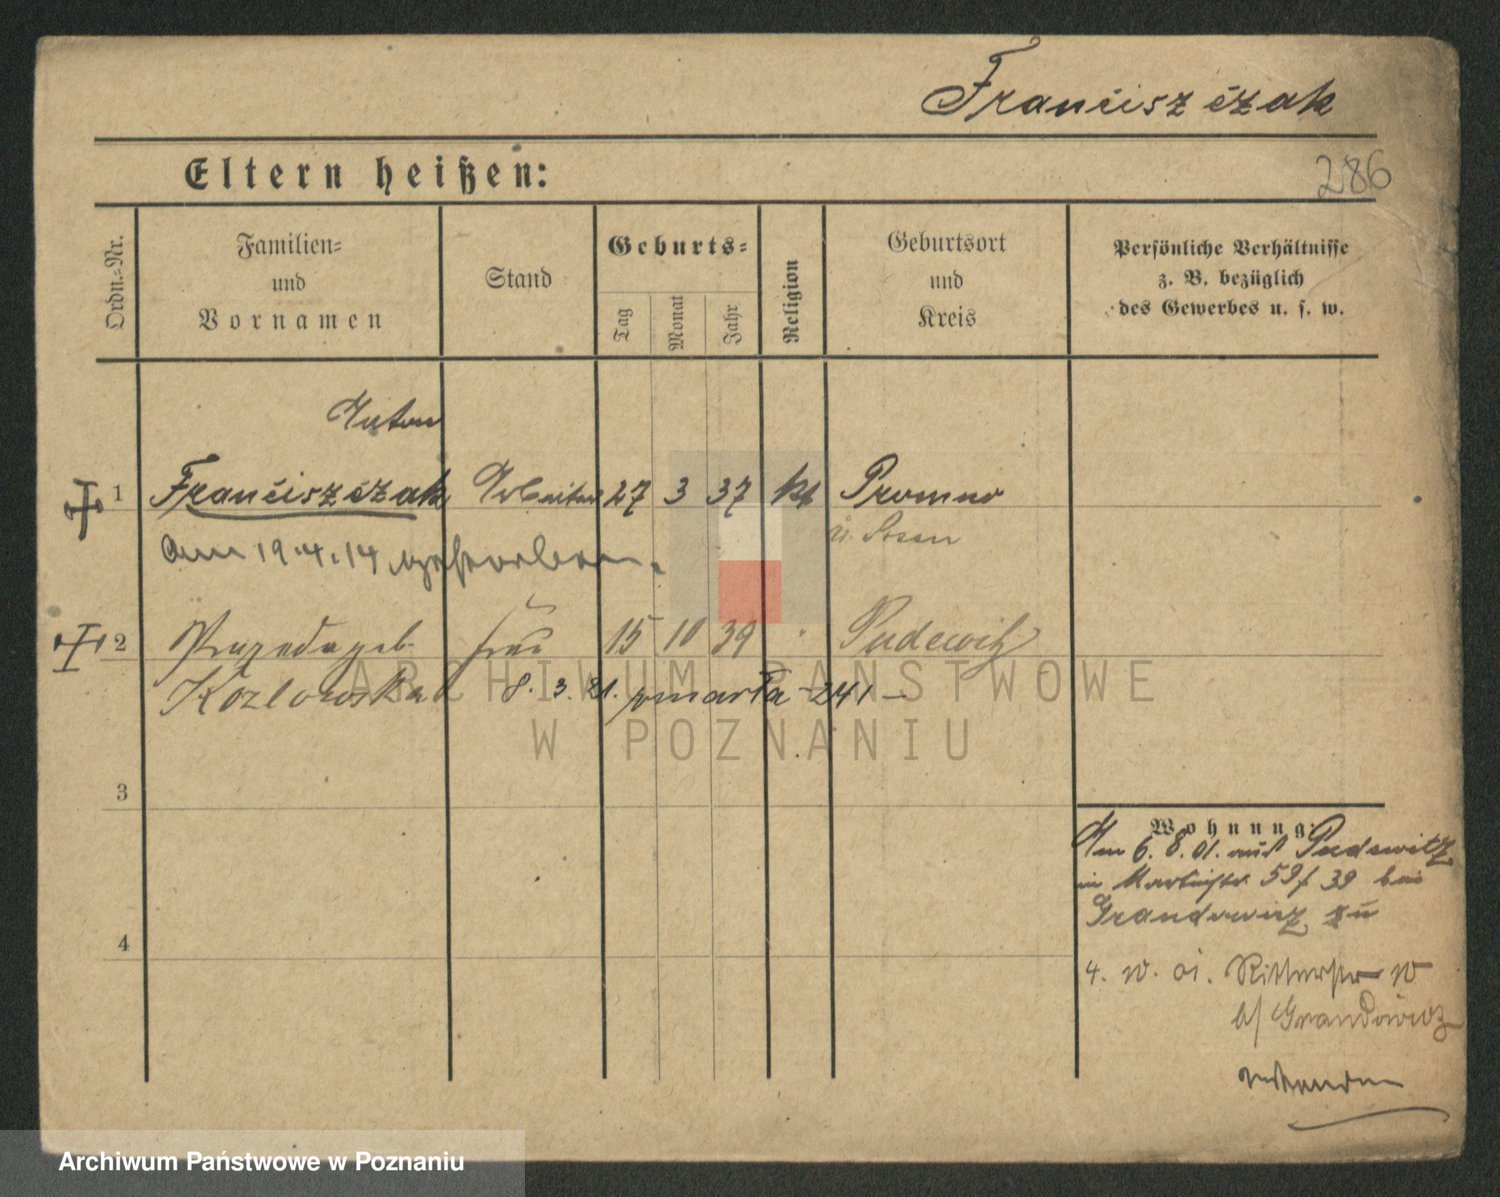 Franciszczak
286
Eltern heißen:
Ordn.-Nr.
Familien-
und
Vornamen
Stand
Geburts-
Tag
Monat
Jahr
Religion
Geburtsort
und
Kreis
Persönliche Verhältnisse
z. B. bezüglich
des Gewerbes u. s. w.
Anton
1 Franciszczak Arbeiter 27 3 37 kt Promno
Am 19.4.14 gestorben.
2 geb Frau 15 10 39 " Pudewitz
Kozlowska 8. 3. 21. zmarła - 241 -
3
Wohnung:
Am 6. 8. 01. aus Pudewitz
in 59/ 39 bei
zu
4
4. 10. 01. Ritterstr 10
b/
ARCHIWUM PAŃSTWOWE
W POZNANIU
Archiwum Państwowe w Poznaniu